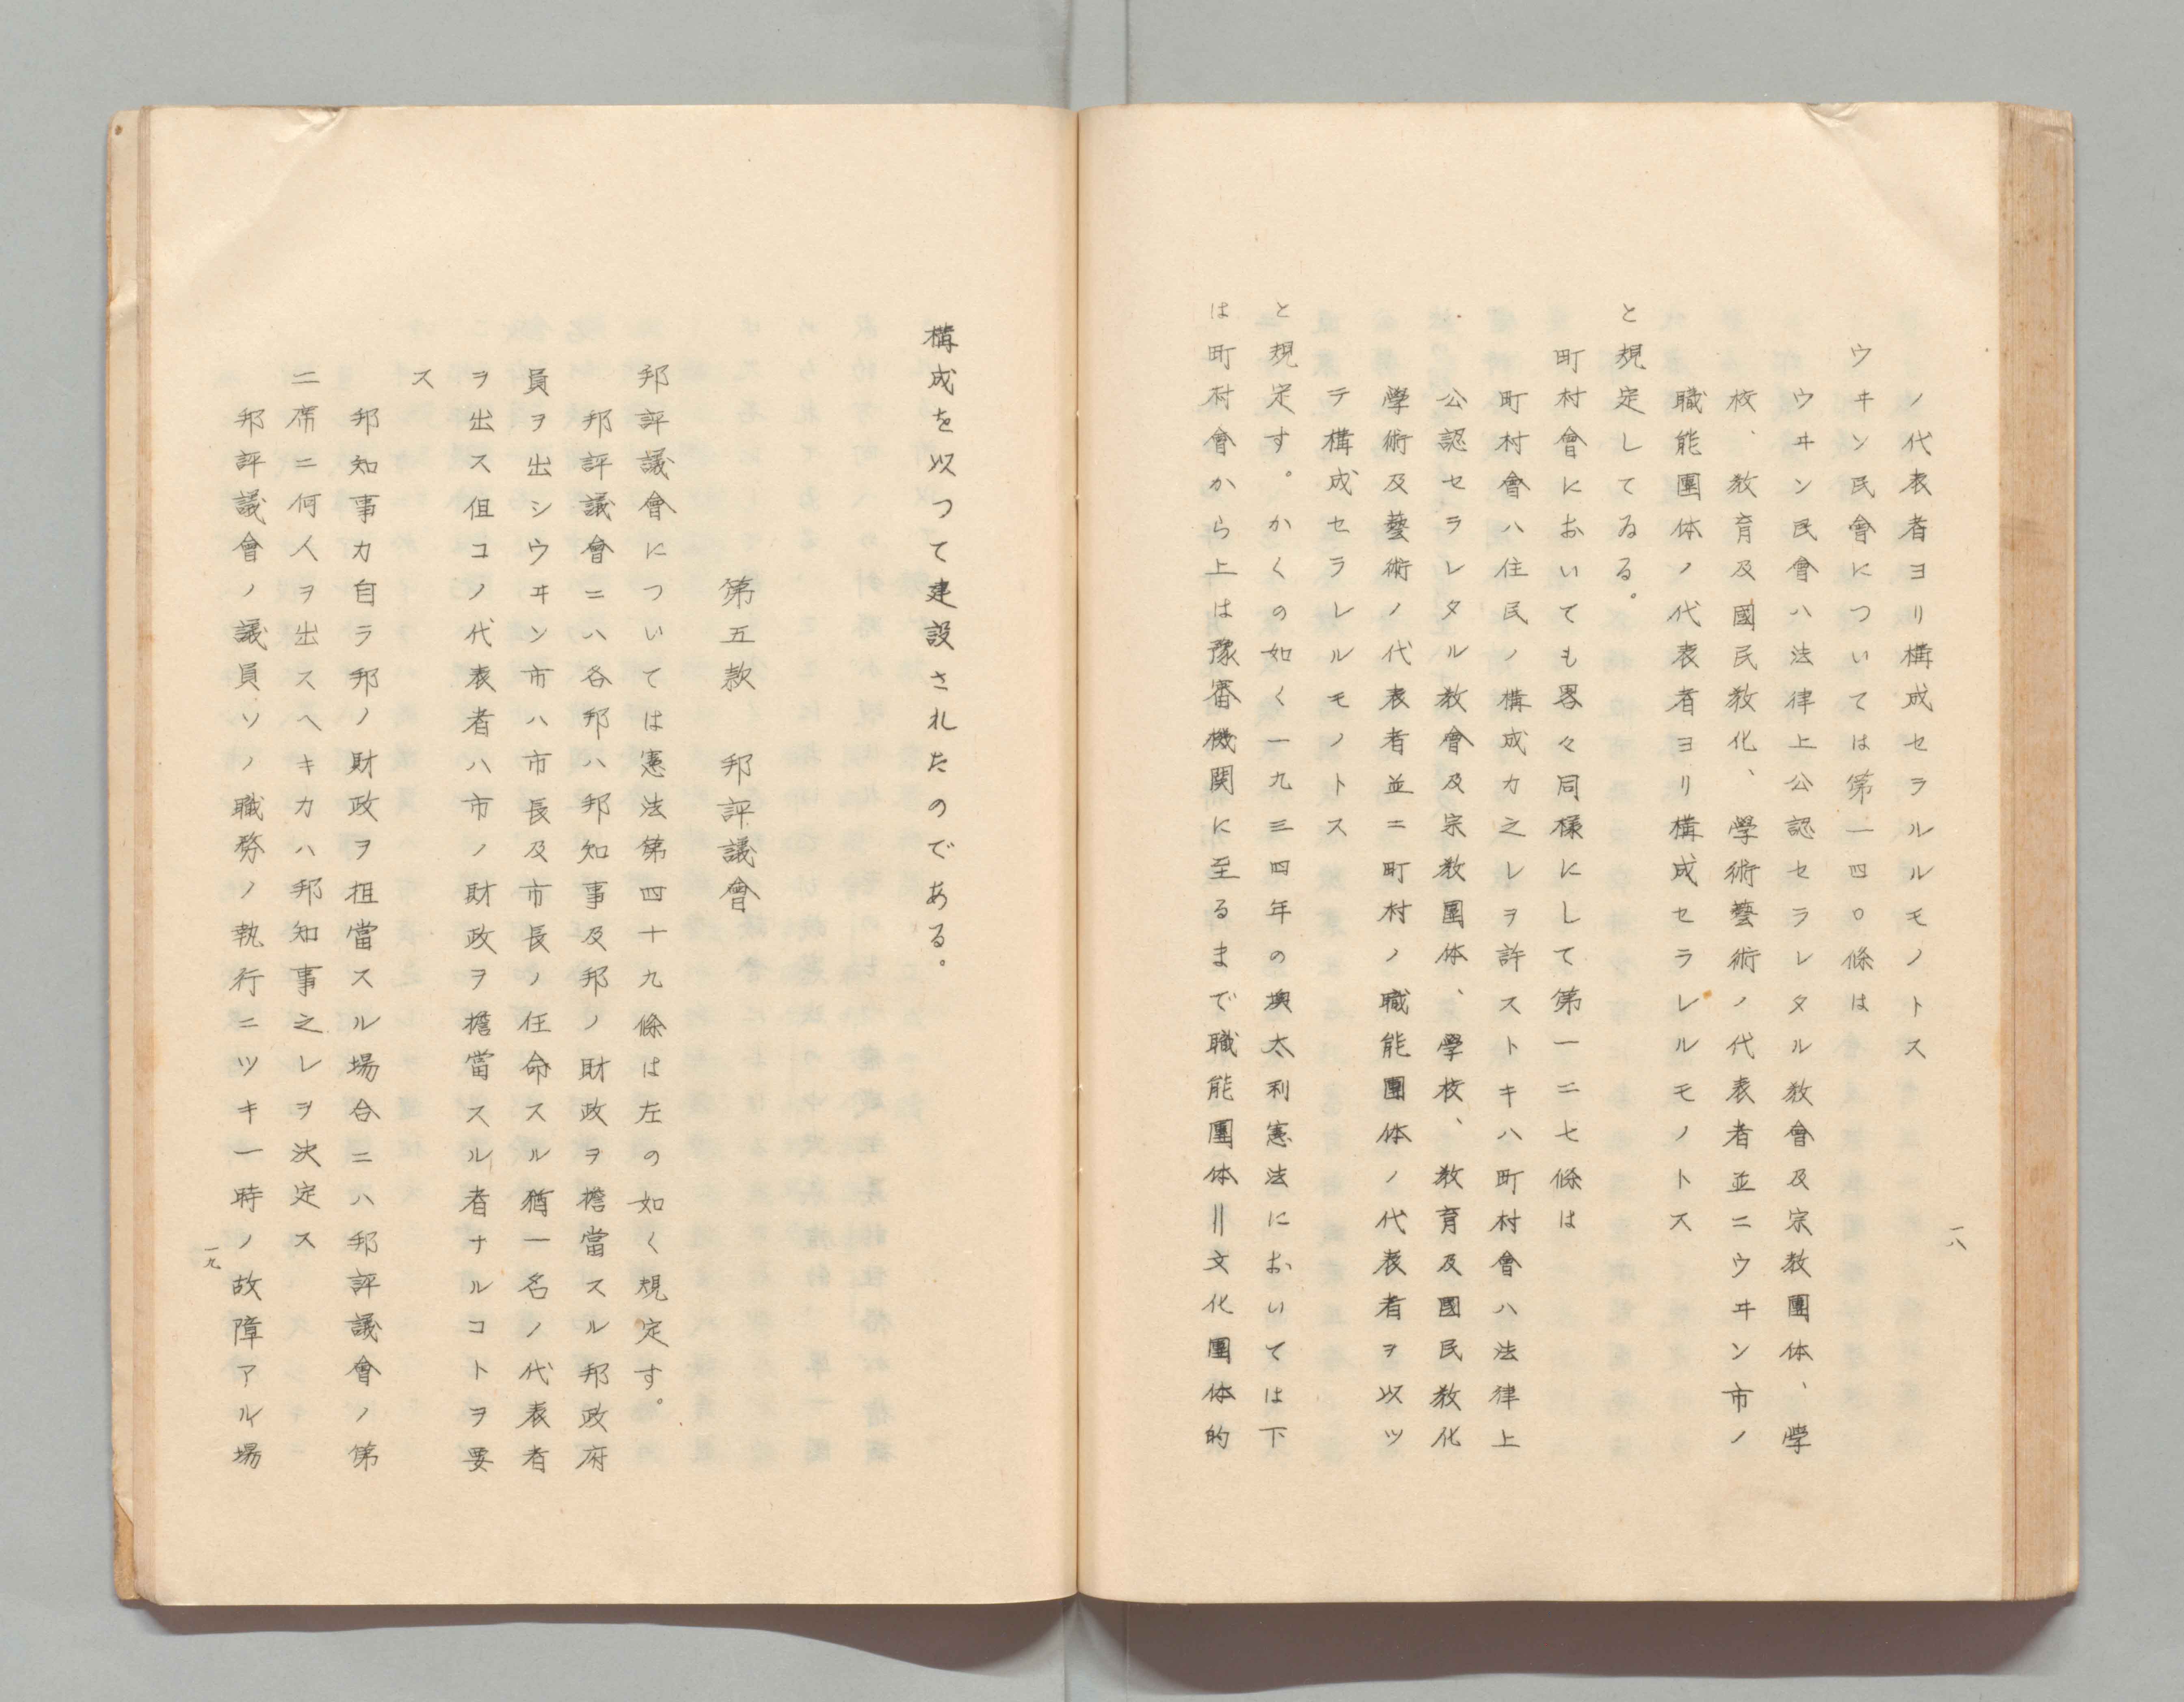 一八
ノ代表者ヨリ構成セラルルモノトス
ウヰン民會については第一四〇條は
ウヰン民會ハ法律上公認セラレタル教會及宗教團体、學
校、教育及國民教化、學術藝術ノ代表者並ニウヰン市ノ
職能團体ノ代表者ヨリ構成セラレルモノトス
と規定してゐる。
町村會においても畧々同様にして第一二七條は
町村會ハ住民ノ構成カ之レヲ許ストキハ町村會ハ法律上
公認セラレタル教會及宗教團体、學校、教育及國民教化
學術及藝術ノ代表者並ニ町村ノ職能團体ノ代表者ヲ以ツ
テ構成セラレルモノトス
と規定す。かくの如く一九三四年の墺太利憲法においては下
は町村會から上は豫審機関に至るまで職能團体＝文化團体的
構成を以つて建設されたのである。
第五款　邦評議會
邦評議會については憲法第四十九條は左の如く規定す。
邦評議會ニハ各邦ハ邦知事及邦ノ財政ヲ擔當スル邦政府
員ヲ出シウヰン市ハ市長及市長ノ任命スル猶一名ノ代表者
ヲ出ス伹コノ代表者ハ市ノ財政ヲ擔當スル者ナルコトヲ要
ス
邦知事カ自ラ邦ノ財政ヲ担當スル場合ニハ邦評議會ノ第
二席ニ何人ヲ出スヘキカハ邦知事之レヲ決定ス
邦評議會ノ議員ソノ職務ノ執行ニツキ一時ノ故障アル場
一九